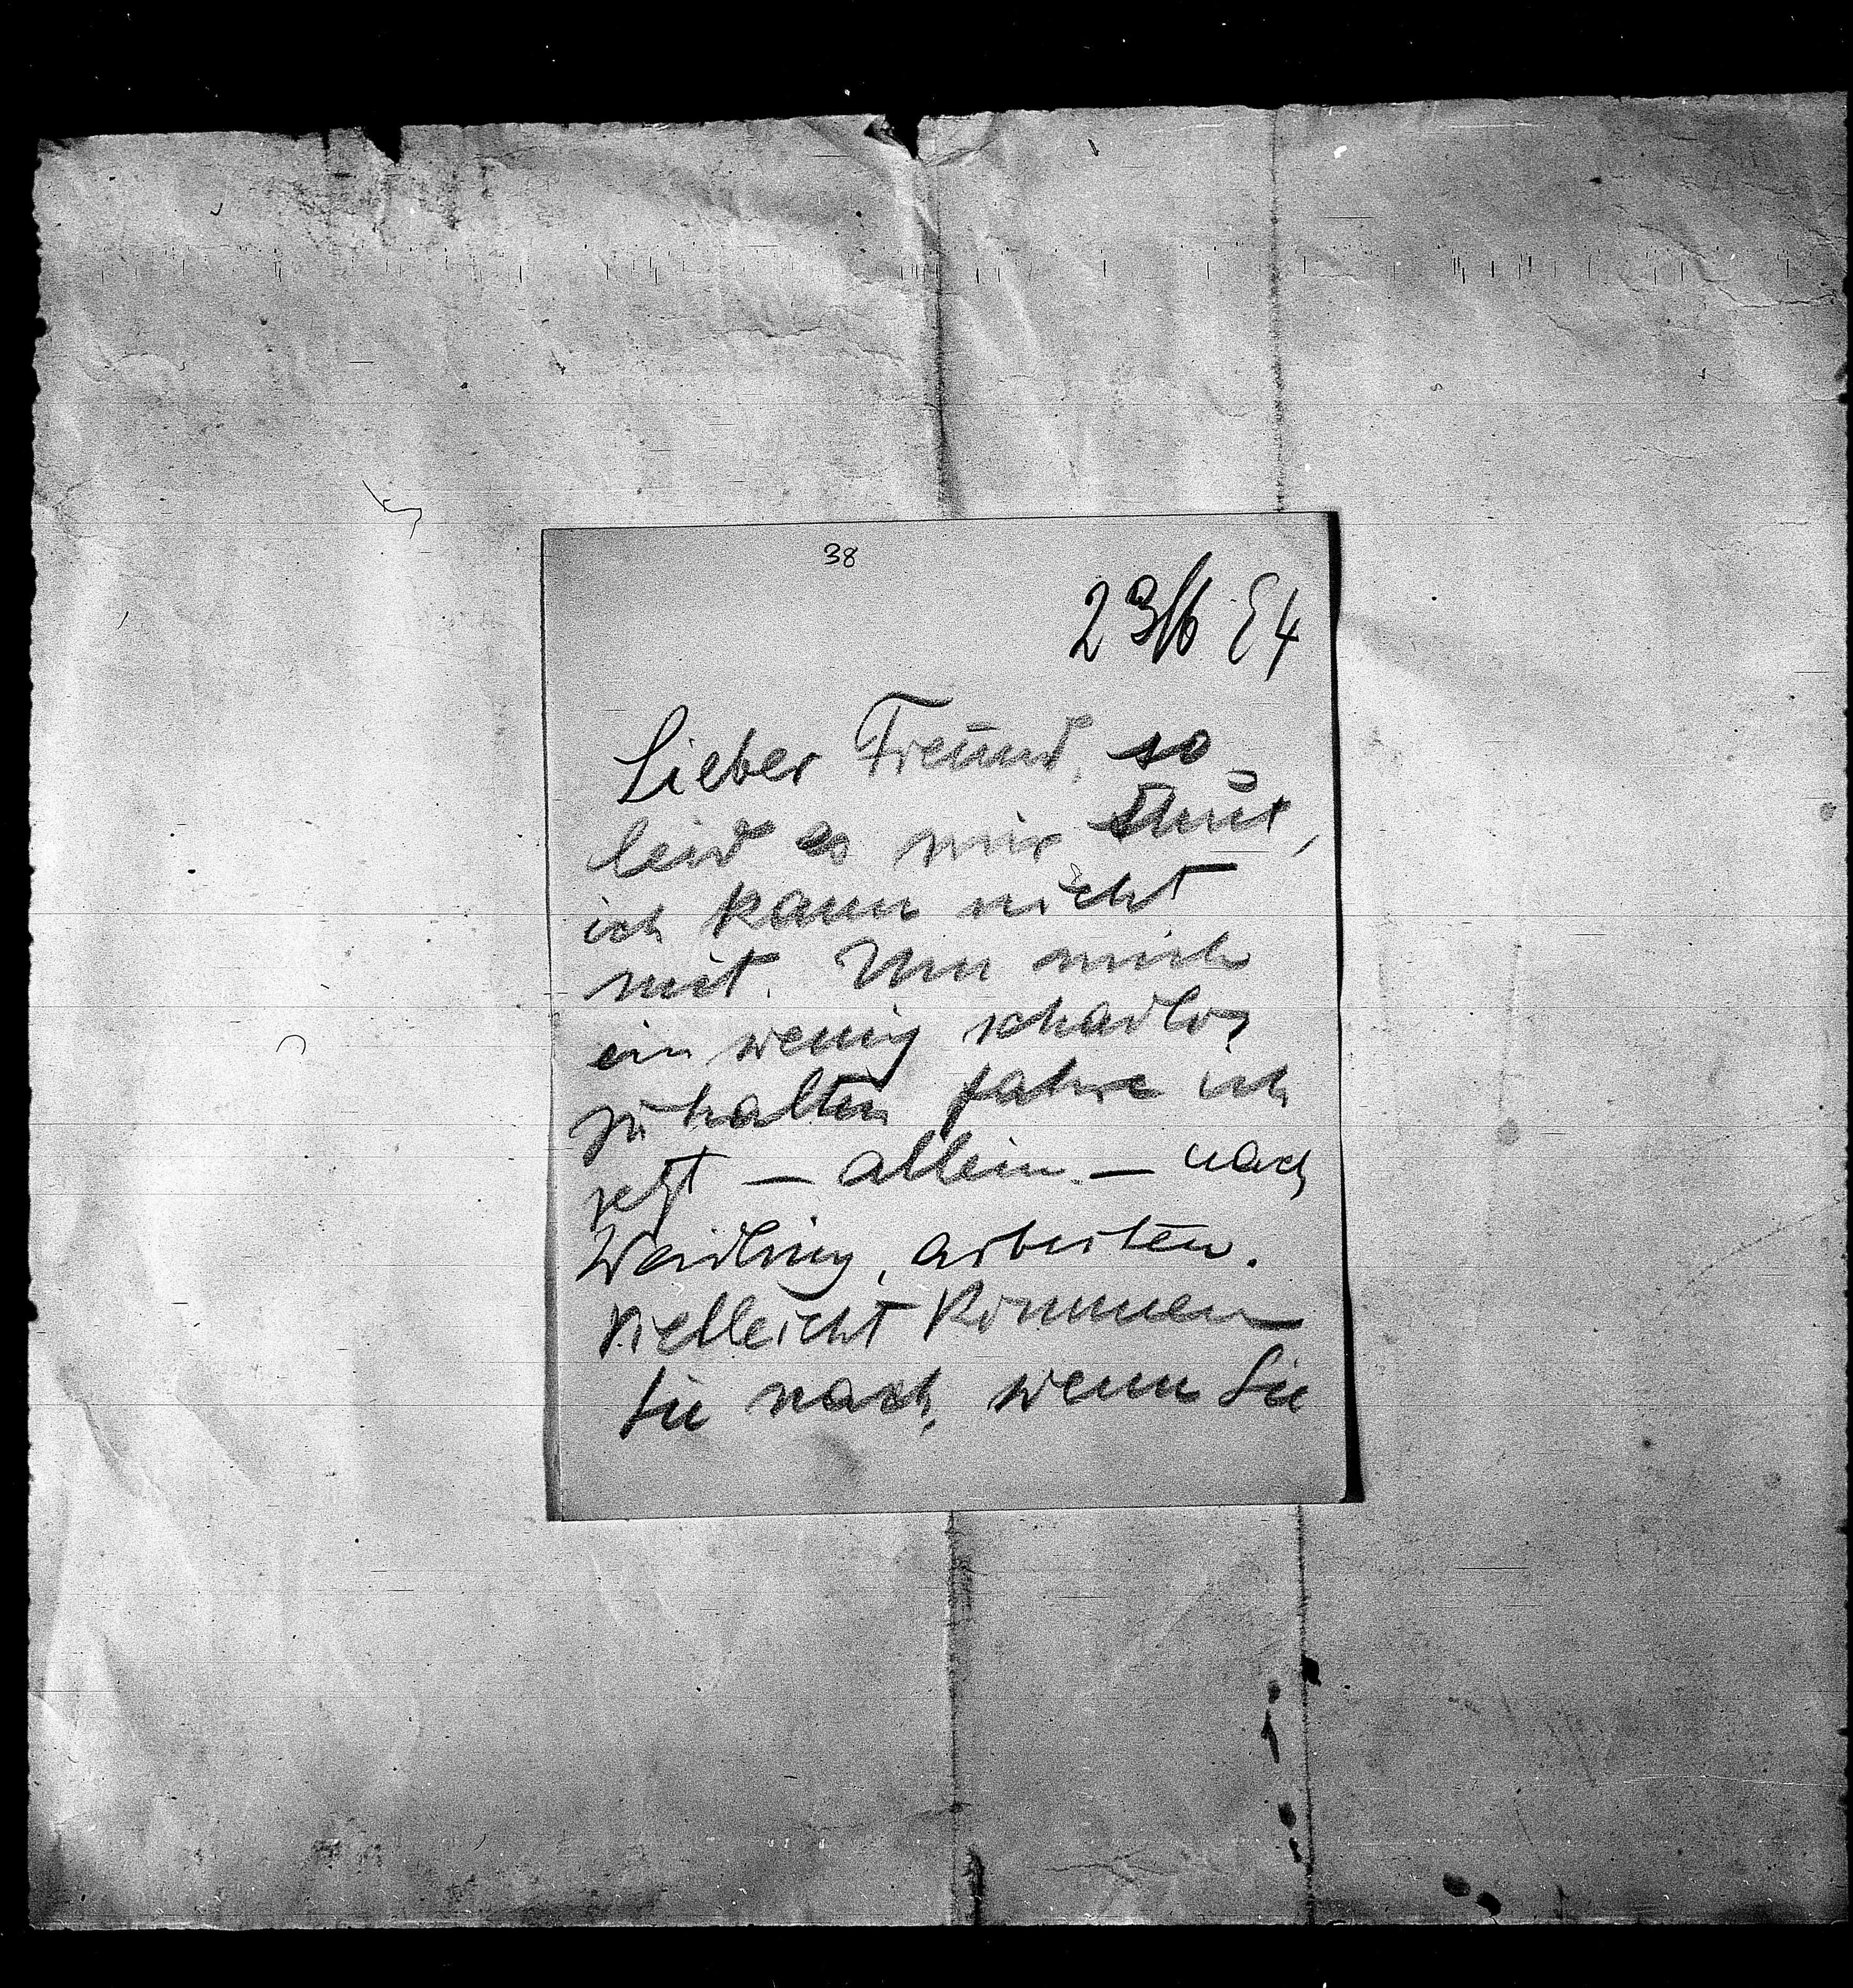 38
23/6 94
Lieber Freund, so
leid es mir thut,
ich kann nicht
mit. Um mich
ein wenig schadlos
zu halten fahre ich
jetzt – allein – nach
Weidling, arbeiten.
Vielleicht kommen
Sie nach, wenn Sie